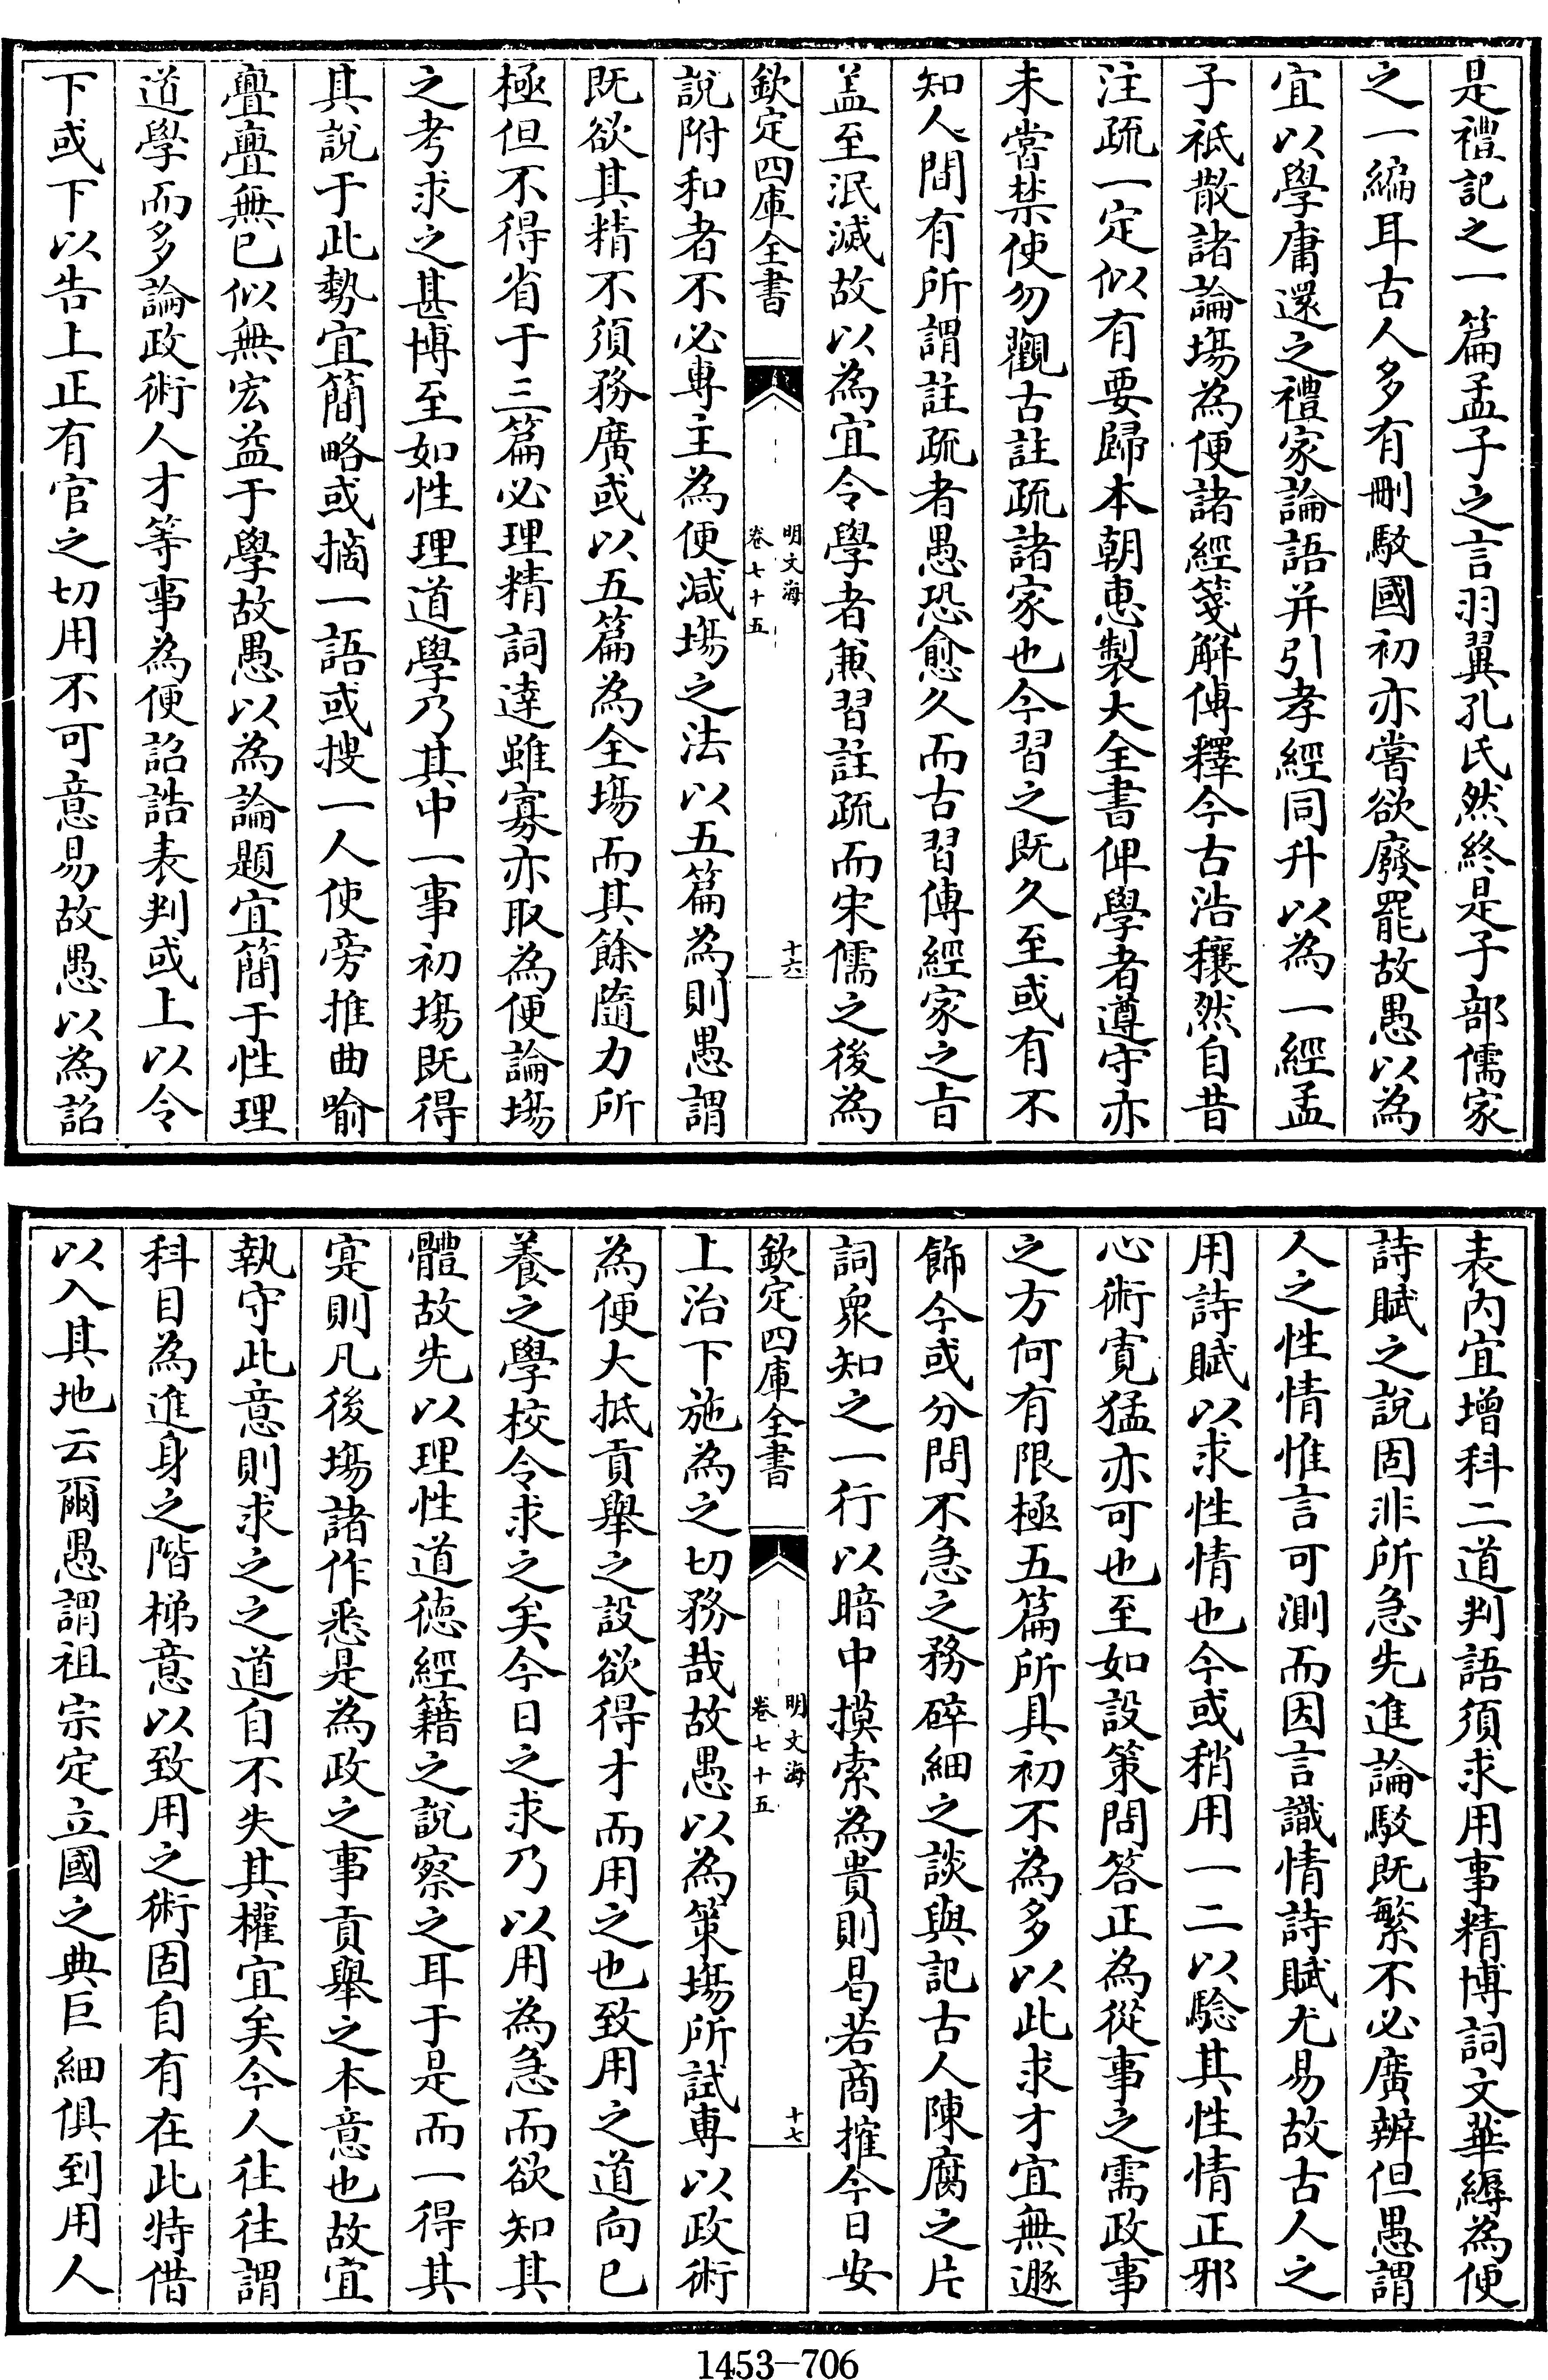 是禮記之一篇孟子之言羽翼孔氏然終是子部儒家
之一編耳古人多有刪駁國初亦嘗欲廢罷故愚以為
宜以學庸還之禮家論語并引孝經同升以為一經孟
子祇散諸論塲為便諸經箋解傳釋今古浩穰然自昔
注疏一定似有要歸本朝惠製大全書俾學者遵守亦
未嘗禁使勿觀古註疏諸家也今習之既久至或有不
知人間有所謂註疏者愚恐愈久而古習傳經家之旨
盖至泯滅故以為宜令學者兼習註疏而宋儒之後為
欽定四庫全書
明文海
卷七十五
十六
說附和者不必專主為便減塲之法以五篇為則愚謂
既欲其精不須務廣或以五篇為全塲而其餘隨力所
極但不得省于三篇必理精詞達雖寡亦取為便論塲
之考求之甚博至如性理道學乃其中一事初塲既得
其說于此勢宜簡略或摘一語或搜一人使旁推曲喻
亹亹無已似無宏益于學故愚以為論題宜簡于性理
道學而多論政術人才等事為便詔誥表判或上以令
下或下以告上正有官之切用不可意易故愚以為詔
表内宜增科二道判語須求用事精博詞文華縟為便
詩賦之說固非所急先進論駁既繁不必廣辨但愚謂
人之性情惟言可測而因言識情詩賦尤易故古人之
用詩賦以求性情也今或稍用一二以騐其性情正邪
心術寛猛亦可也至如設策問答正為從事之需政事
之方何有限極五篇所具初不為多以此求才宜無遯
飾今或分問不急之務碎細之談與記古人陳腐之片
詞衆知之一行以暗中摸索為貴則曷若商搉今日安
欽定四庫全書
明文海
卷七十五
十七
上治下施為之切務哉故愚以為策塲所試專以政術
為便大抵貢舉之設欲得才而用之也致用之道向已
養之學校令求之矣今日之求乃以用為急而欲知其
體故先以理性道徳經籍之說察之耳于是而一得其
寔則凡後塲諸作悉是為政之事貢舉之本意也故宜
執守此意則求之之道自不失其權宜矣今人徃徃謂
科目為進身之階梯意以致用之術固自有在此特借
以入其地云爾愚謂祖宗定立國之典巨細俱到用人
1453—706